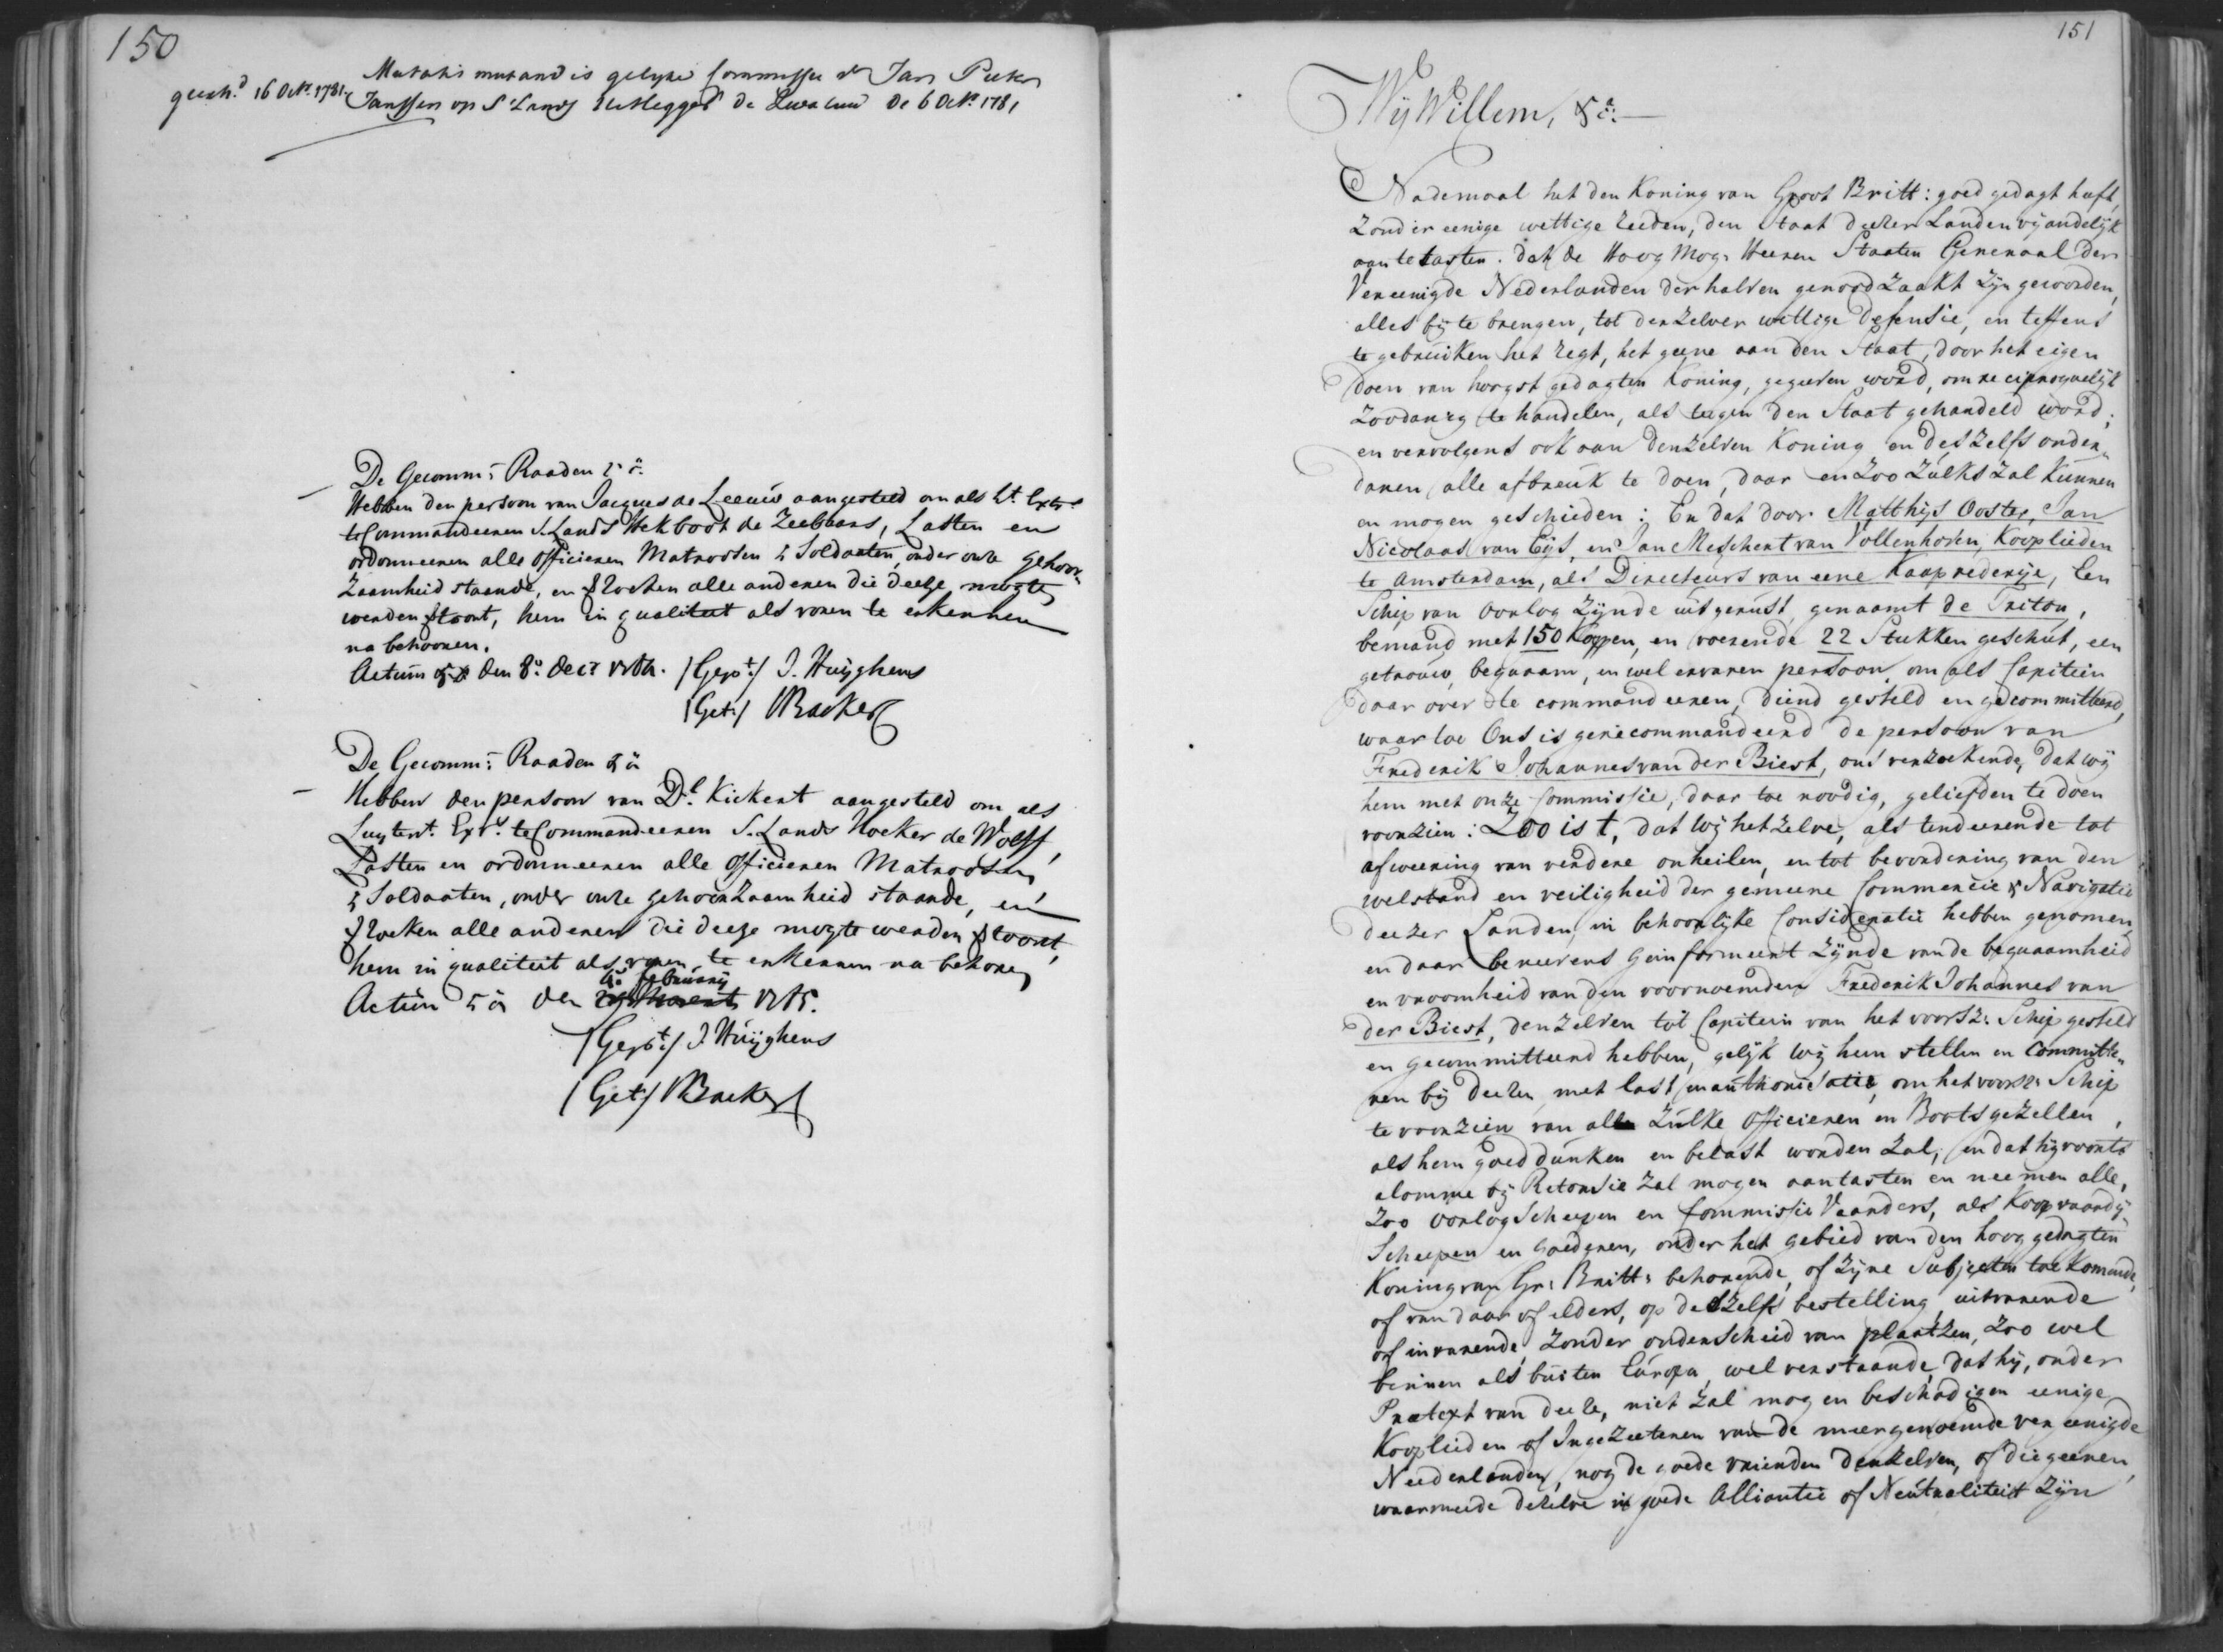 150
Mutatis mutandis gelyke Commissie Jan Pieter
gesch.d 16 Oct. 1781. Janssen op S Lands uitlegger de Zwaluw de 6 Oct. 1781
De Gecomm: Raaden
Hebben den persoon van Jacques de Leeuw aangesteld om als Lt. Extr.
te Commandeeren S. Lands Hekboot de Zeebaars, Lasten en
ordonneeren alle officieren Matroosen & Soldaaten, onder onze gehoor„
zaamheid staande, en verzoeken alle anderen die deeze mogte
werden vertoont, hem in qualiteit als vooren te erkennen
na behooren.
Actum den 8.e Decr
(Gept:) J. Huyghens
(Get:) Backer
De Gecomm: Raaden
Hebben den persoon van Dl. Kickert aangesteld om als
Luytent. Extr. te Commandeeren S. Lands Hoeker de Wolff,
Lasten en ordonneeren alle officieren Matroosen
& Soldaaten, onder onze gehoorzaamheid staande, en
verzoeken alle anderen die deeze mogte werden vertoont,
hem in qualiteit als voren te erkennen na behoren
februarij
Actum den
(Gept:) J. Huyghens
(Get:) Backer
151
Wij Willem, &c:
Nademaal het den Koning van Groot Britt: goed gedagt heeft,
zonder eenige wettige reeden, den Staat deezer Landen vyandelijk
aan te tasten. dat de Hoog Mog: Heeren Staaten Generaal der
Vereenigde Nederlanden derhalven genoodzaakt zijn geworden,
alles bij te brengen, tot derzelver wettige defensie, en teffens
te gebruiken het regt, het geene aan den Staat, door het eigen
doen van hoogst gedagten Koning, gegeeven word, om reciproquelijk
zoodanig te handelen, als teegen den Staat gehandeld word;
en vervolgens ook aan denzelven Koning en deszelfs onder„
danen alle afbreuk te doen, daar en zoo zulks zal kunnen
en mogen geschieden: En dat door Matthijs Ooster, Jan
Nicolaas van Eijs, en Jan Meschert van Vollenhoven, Kooplieden
te Amsterdam, als Directeurs van eene Kaaprederije, Een
Schip van Oorlog zijnde uitgerust, genaamt de Triton,
bemand met 150 Koppen, en voerende 22 Stukken geschut, een
getrouw, bequaam, en wel ervaren persoon, om als Capitein
daar over te commandeeren, diend gesteld en gecommitteerd,
waar toe Ons is gerecommandeerd de persoon van
Frederik Johannes van der Biest, ons verzoekende, dat wij
hem met onze Commissie, daar toe noodig, geliefden te doen
voorzien: Zoo is t, dat wij het zelve, als tendeerende tot
afweering van verdere onheilen, en tot bevordering van den
welstand en veiligheid der gemeene Commercie & Navigatie
deezer Landen, in behoorlijke Consideratie hebben genomen
en daar beneevens geinformeert zijnde van de bequaamheid
en vroomheid van den voornoemden Frederik Johannes van
der Biest, denzelven tot Capitein van het voorsz: Schip gesteld
en gecommitteerd hebben, gelijk wij hem stellen en Committe„
ren bij deezen, met last en authorisatie, om het voorsz: Schip
te voorzien van alle zulke Officieren en Bootsgezellen,
als hem goed dunken en belast worden zal, en dat hij voorts
alomme bij Retorsie zal mogen aantasten en neemen alle,
zoo Oorlog Scheepen en Commissie Vaarders, als Koopvaardij
Scheepen en goederen, onder het gebied van den hoog gedagten
Koning van Gr: Britt: behorende, of zijne Subjecten toekomende,
of van daar of elders, op deszelfs bestelling, uitvarende
of invarende, zonder onderscheid van plaatzen, zoo wel
binnen als buiten Europa, wel verstaande, dat hij, onder
Prætext van deeze, niet zal mogen beschadigen eenige
Kooplieden of Ingezeetenen van de meergenoemde vereenigde
Neederlanden, nog de goede vrienden derzelven, of diegeenen,
waarmeede dezelve in goede Alliantie of Neutraliteit zijn